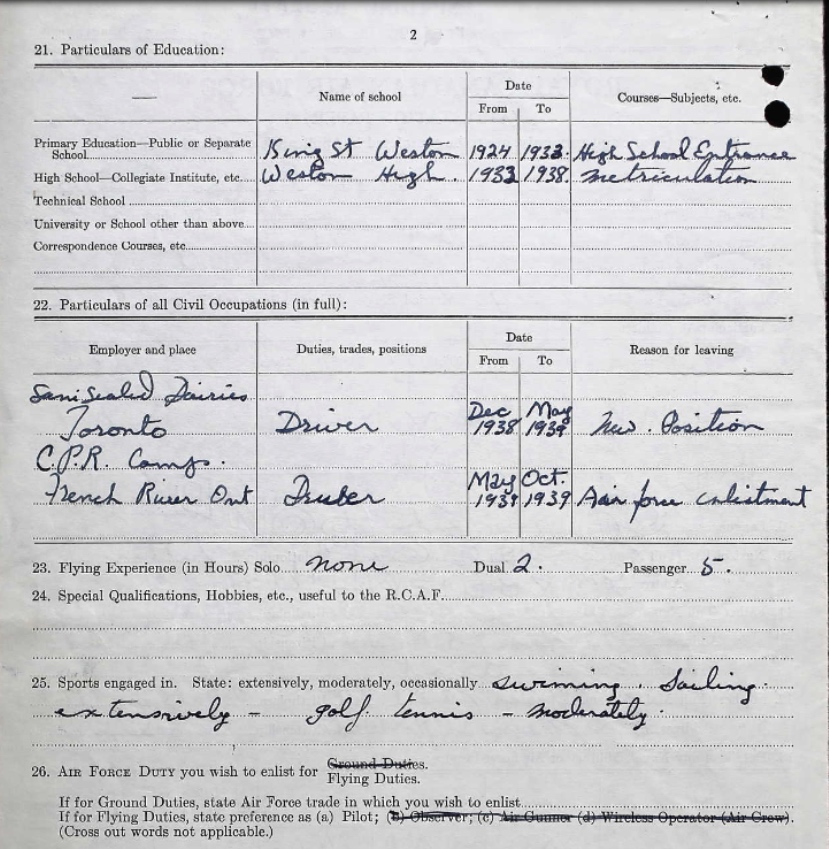 2
21. Particulars of Education:
Name of school
Date
From To
Courses—Subjects, etc.
Primary Education—Public or Separate
School
King St Weston 1924 1933 High School Entrance
High School—Collegiate Institute, etc. Weston High. 1933 1938 Metriculation
Technical School
University or School other than above
Correspondence Courses, etc
22. Particulars of all Civil Occupations (in full):
Employer and place
Duties, trades, positions
Date
From To
Reason for leaving
Sanisealed Dairies
Toronto Driver Dec 1938 May 1939 New Position
C.P.R. Camp.
French River Ont May 1939 Oct. 1939 Air force enlistment
23. Flying Experience (in Hours) Solo none Dual 2. Passenger 5.
24. Special Qualifications, Hobbies, etc., useful to the R.C.A.F.
25. Sports engaged in. State: extensively, moderately, occasionally swimming. Sailing.
extensively – golf. tennis – moderately.
26. AIR FORCE DUTY you wish to enlist for Ground Duties.
Flying Duties.
If for Ground Duties, state Air Force trade in which you wish to enlist
If for Flying Duties, state preference as (a) Pilot; (b) Observer; (c) Air Gunner (d) Wireless Operator (Air Crew).
(Cross out words not applicable.)